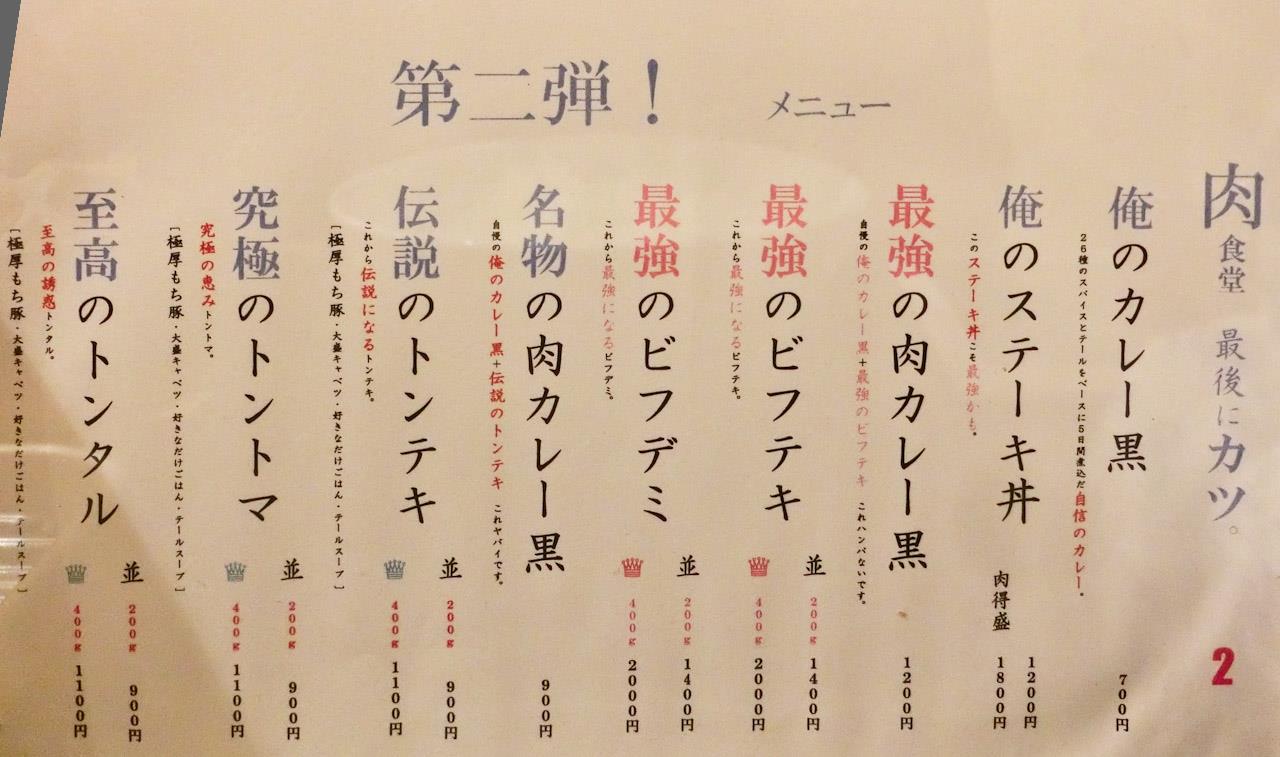 第二弾！ メニュー
肉食堂 最後にカツ。 2
俺のカレー黒 700円
26種のスパイスとテールをベースに5日間煮込だ自信のカレー。
俺のステーキ丼 1200円
肉得盛 1800円
このステーキ丼こそ最強かも。
最強の肉カレー黒 1200円
自慢の俺のカレー黒+最強のビフテキ これハンパないです。
最強のビフテキ 並 200g 1400円
400g 2000円
これから最強になるビフテキ。
最強のビフデミ 並 200g 1400円
400g 2000円
これから最強になるビフデミ。
名物の肉カレー黒 900円
自慢の俺のカレー黒+伝説のトンテキ これヤバイです。
伝説のトンテキ 並 200g 900円
400g 1100円
これから伝説になるトンテキ。
［極厚もち豚・大盛キャベツ・好きなだけごはん・テールスープ］
究極のトントマ 並 200g 900円
400g 1100円
究極の恵みトントマ。
［極厚もち豚・大盛キャベツ・好きなだけごはん・テールスープ］
至高のトンタル 並 200g 900円
400g 1100円
至高の誘惑トンタル。
［極厚もち豚・大盛キャベツ・好きなだけごはん・テールスープ］